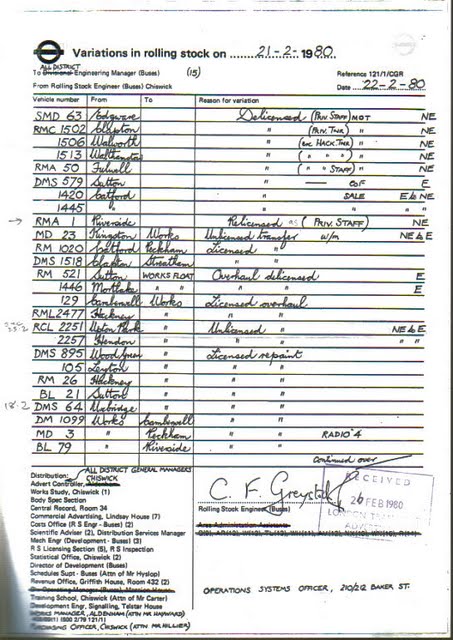 Variations in rolling stock on 21-2-1980.
ALL DISTRICT
To Divisional Engineering Manager (Buses) (15)
Reference 121/1/CGR
From Rolling Stock Engineer (Buses) Chiswick
Date 22-2-80
Vehicle number From To Reason for variation
SMD 63 Edgware Delicensed (PRIV. STAFF) MOT NE
RMC 1502 Clapton " (PRIV. TNR) NE
1506 Walworth " (exc HACK. TNR) NE
1513 Walthamstow " ( " " " ) NE
RMA 50 Fulwell " ( " STAFF) " NE
DMS 579 Sutton " — COF E
1420 Catford " SALE E & NE
1445 " " " "
→ RMA 1 Riverside Relicensed as (PRIV. STAFF) NE
MD 23 Kingston Works Unlicensed transfer w/m NE & E
RM 1020 Catford Peckham Licensed "
DMS 1518 Clapton Streatham " "
RM 521 Sutton WORKS FLOAT Overhaul delicensed E
1446 Mortlake " " " " E
129 Camberwell Works Licensed overhaul
RML 2477 Hackney " " "
RCL 2251 Upton Park " Unlicensed " NE & E
2257 Hendon " " " " "
DMS 895 Wood Green " Licensed repaint
105 Leyton " " "
RM 26 Hackney " " "
BL 21 Sutton " " "
18.2 DMS 64 Uxbridge " " "
DM 1099 Works Camberwell " "
MD 3 " Peckham " " RADIO 4
BL 79 " Riverside " "
Continued over
Distribution: ALL DISTRICT GENERAL MANAGERS
CHISWICK
Advert Controller, Aldenham
Works Study, Chiswick (1)
Body Spec Section
Central Record, Room 34
Commercial Advertising, Lindsay House (7)
Costs Office (R S Engr - Buses) (2)
Scientific Adviser (2), Distribution Services Manager
Mech Engr (Development - Buses) (3)
R S Licensing Section (5), R S Inspection
Statistical Office, Chiswick (2)
Director of Development (Buses)
Schedules Supt - Buses (Attn of Mr Hyslop)
Revenue Office, Griffith House, Room 432 (2)
Training School, Chiswick (Attn of Mr Carter)
Development Engr, Signalling, Telstar House
WORKS MANAGER, ALDENHAM (ATTN MR HAYWARD)
PURCHASING OFFICER, CHISWICK (ATTN MR HILLIER)
C. F. Greystock
Rolling Stock Engineer (Buses)
Area Administration Assistants
RECEIVED
26 FEB 1980
OPERATIONS SYSTEMS OFFICER, 210/212 BAKER ST.